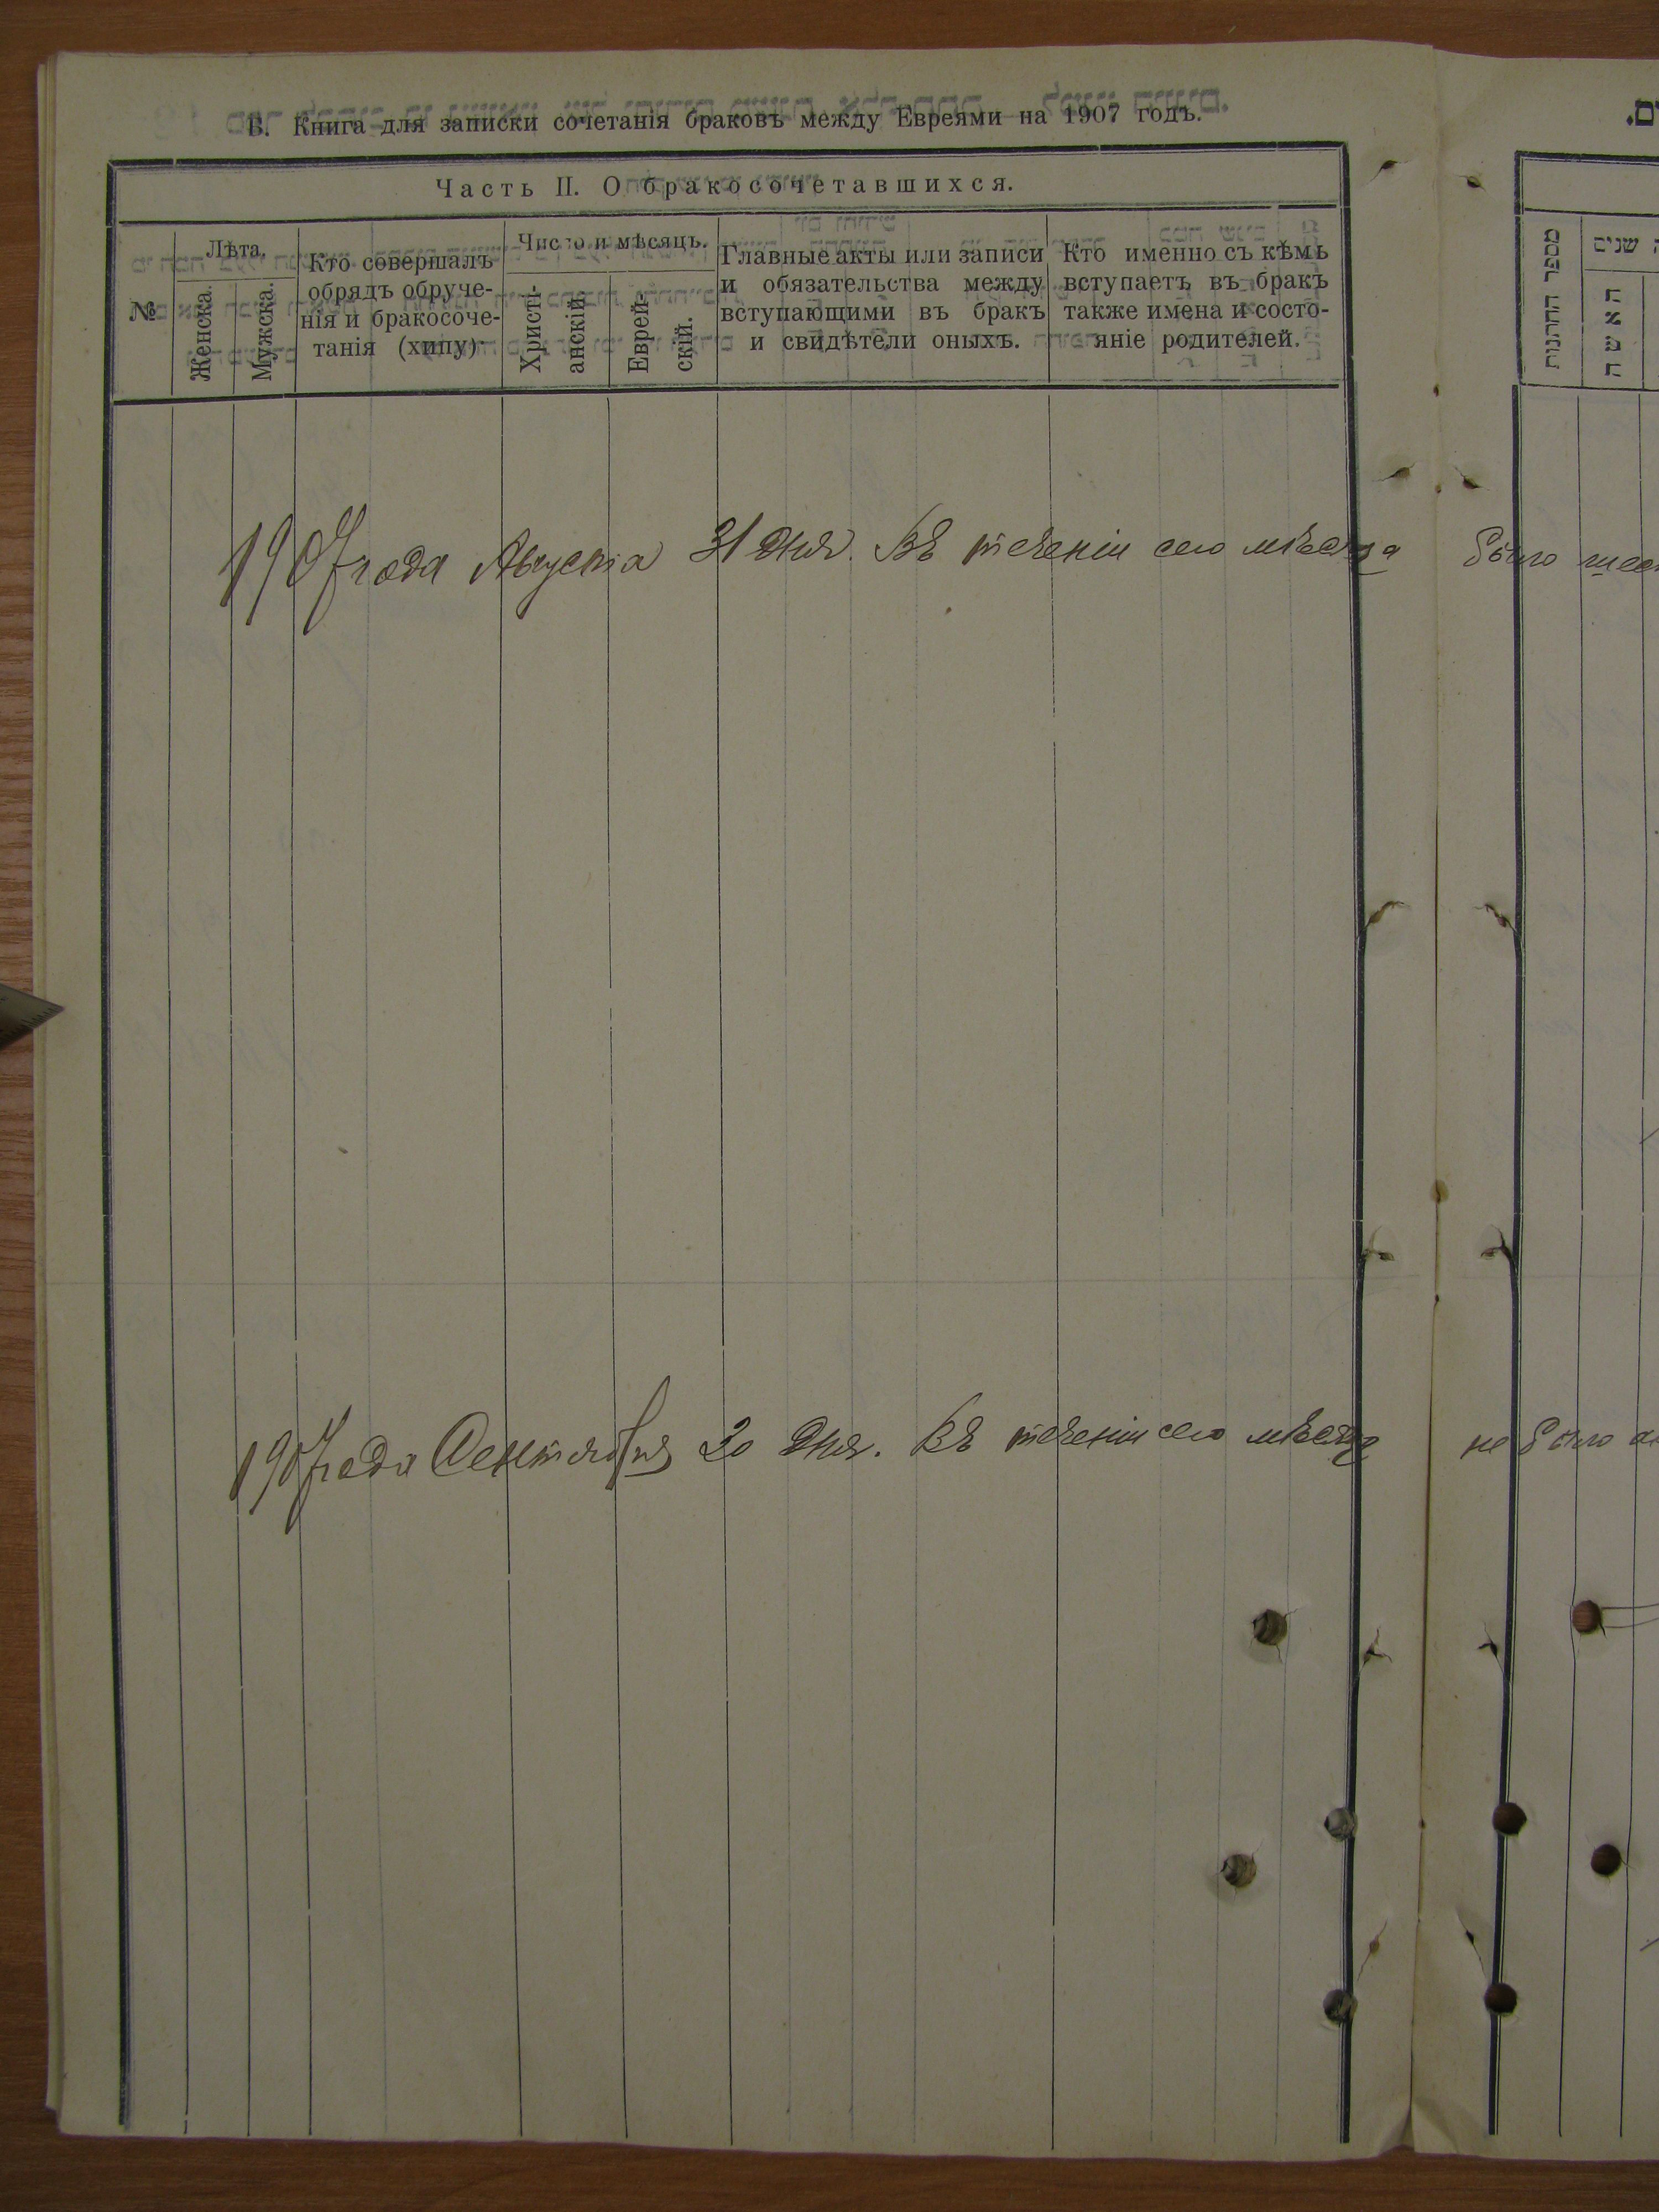 В. Книга для записки сочетанія браковъ между Евреями на 1907 годъ.
Часть II. О бракосочетавшихся.
№
Лѣта.
Женска.
Мужска.
Кто совершалъ
обрядъ обруче-
нія и бракосоче-
танія (хипу)
Число и мѣсяцъ.
Христі-
анскій
Еврей-
скій.
Главные акты или записи
и обязательства между
вступающими въ бракъ
и свидѣтели оныхъ.
Кто именно съ кѣмъ
вступаетъ въ бракъ
также имена и состо-
яніе родителей.
1907 года Августа 31 дня. Въ теченіи сего мѣсяца было
1907 года Сентября 30 дня. Въ теченіи сего мѣсяца не было
מספר החתנות
שנים
האשה